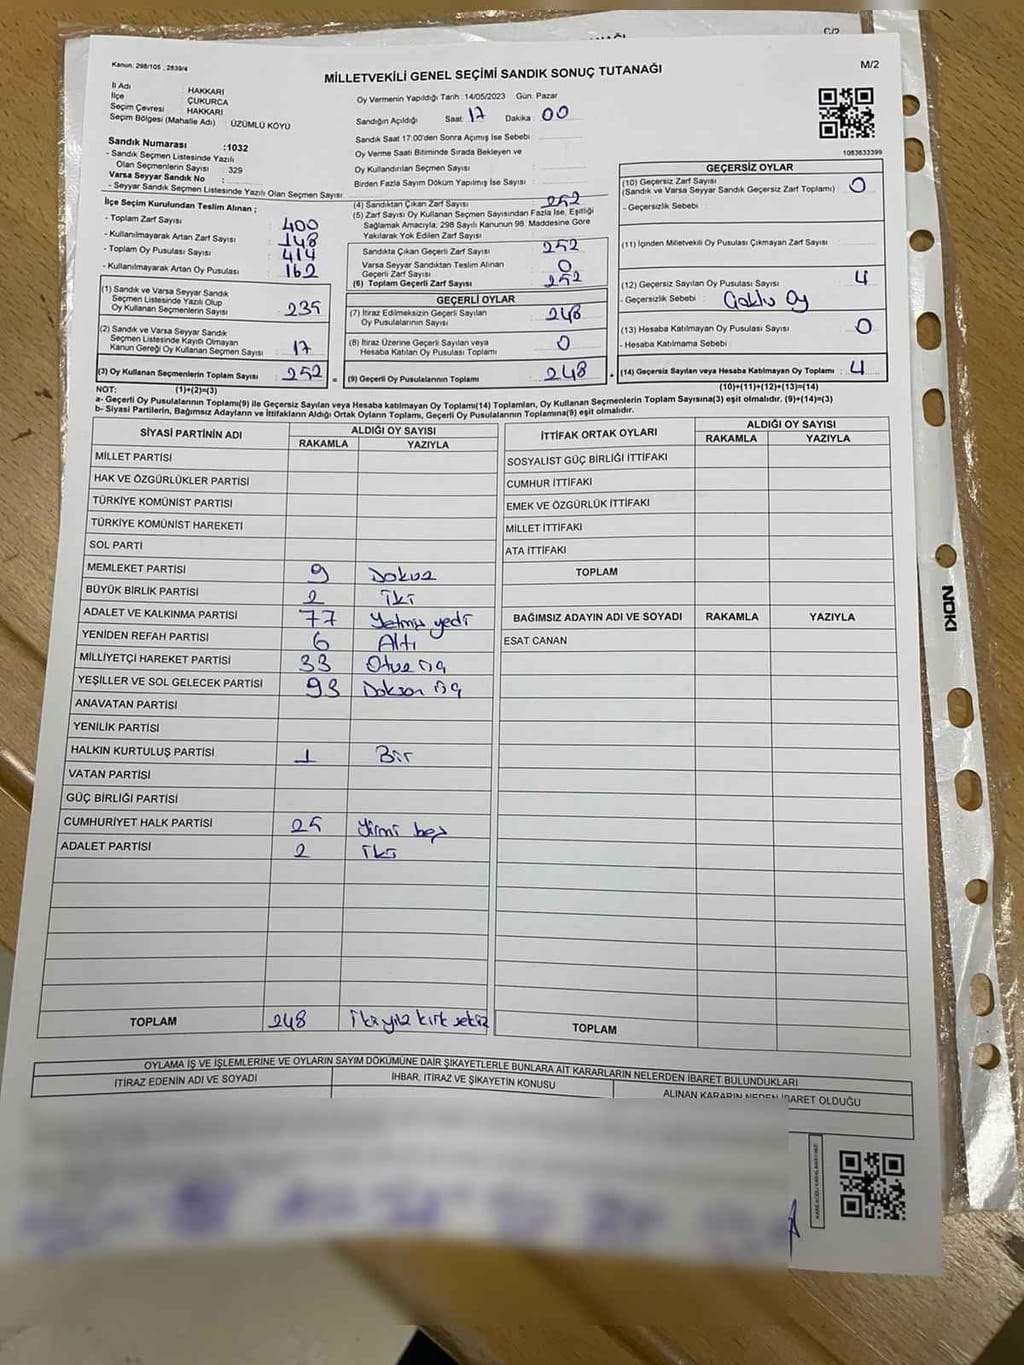 C/2
Kanun: 298/105 , 2839/4
MİLLETVEKİLİ GENEL SEÇİMİ SANDIK SONUÇ TUTANAĞI
M/2
İl Adı : HAKKARI
İlçe : ÇUKURCA
Seçim Çevresi : HAKKARI
Seçim Bölgesi (Mahalle Adı) : ÜZÜMLÜ KÖYÜ
Sandık Numarası :1032
- Sandık Seçmen Listesinde Yazılı
Olan Seçmenlerin Sayısı : 329
Varsa Seyyar Sandık No :
- Seyyar Sandık Seçmen Listesinde Yazılı Olan Seçmen Sayısı:
Oy Vermenin Yapıldığı Tarih :14/05/2023 Gün: Pazar
Sandığın Açıldığı Saat: 17 Dakika : 00
Sandık Saat 17.00'den Sonra Açılmış İse Sebebi :
Oy Verme Saati Bitiminde Sırada Bekleyen ve
Oy Kullandırılan Seçmen Sayısı :
Birden Fazla Sayım Döküm Yapılmış İse Sayısı :
1083833399
İlçe Seçim Kurulundan Teslim Alınan ;
- Toplam Zarf Sayısı : 400
- Kullanılmayarak Artan Zarf Sayısı : 148
- Toplam Oy Pusulası Sayısı : 414
- Kullanılmayarak Artan Oy Pusulası : 162
(1) Sandık ve Varsa Seyyar Sandık
Seçmen Listesinde Yazılı Olup
Oy Kullanan Seçmenlerin Sayısı : 235
(2) Sandık ve Varsa Seyyar Sandık
Seçmen Listesinde Kayıtlı Olmayan
Kanun Gereği Oy Kullanan Seçmen Sayısı : 17
(3) Oy Kullanan Seçmenlerin Toplam Sayısı : 252
(4) Sandıktan Çıkan Zarf Sayısı : 252
(5) Zarf Sayısı Oy Kullanan Seçmen Sayısından Fazla İse, Eşitliği
Sağlamak Amacıyla; 298 Sayılı Kanunun 98. Maddesine Göre
Yakılarak Yok Edilen Zarf Sayısı :
Sandıkta Çıkan Geçerli Zarf Sayısı : 252
Varsa Seyyar Sandıktan Teslim Alınan
Geçerli Zarf Sayısı : 0
(6) Toplam Geçerli Zarf Sayısı : 252
GEÇERLİ OYLAR
(7) İtiraz Edilmeksizin Geçerli Sayılan
Oy Pusulalarının Sayısı : 248
(8) İtiraz Üzerine Geçerli Sayılan veya
Hesaba Katılan Oy Pusulası Toplamı : 0
(9) Geçerli Oy Pusulalarının Toplamı : 248
GEÇERSİZ OYLAR
(10) Geçersiz Zarf Sayısı
(Sandık ve Varsa Seyyar Sandık Geçersiz Zarf Toplamı) : 0
- Geçersizlik Sebebi :
(11) İçinden Milletvekili Oy Pusulası Çıkmayan Zarf Sayısı :
(12) Geçersiz Sayılan Oy Pusulası Sayısı : 4
- Geçersizlik Sebebi : Çoklu Oy
(13) Hesaba Katılmayan Oy Pusulası Sayısı : 0
- Hesaba Katılmama Sebebi :
(14) Geçersiz Sayılan veya Hesaba Katılmayan Oy Toplamı : 4
NOT: (1)+(2)=(3) (10)+(11)+(12)+(13)=(14)
a- Geçerli Oy Pusulalarının Toplamı(9) ile Geçersiz Sayılan veya Hesaba katılmayan Oy Toplamı(14) Toplamları, Oy Kullanan Seçmenlerin Toplam Sayısına(3) eşit olmalıdır. (9)+(14)=(3)
b- Siyasi Partilerin, Bağımsız Adayların ve İttifakların Aldığı Ortak Oyların Toplamı, Geçerli Oy Pusulalarının Toplamına(9) eşit olmalıdır.
SİYASİ PARTİNİN ADI ALDIĞI OY SAYISI
RAKAMLA YAZIYLA
MİLLET PARTİSİ
HAK VE ÖZGÜRLÜKLER PARTİSİ
TÜRKİYE KOMÜNİST PARTİSİ
TÜRKİYE KOMÜNİST HAREKETİ
SOL PARTİ
MEMLEKET PARTİSİ 9 Dokuz
BÜYÜK BİRLİK PARTİSİ 2 iki
ADALET VE KALKINMA PARTİSİ 77 Yetmiş yedi
YENİDEN REFAH PARTİSİ 6 Altı
MİLLİYETÇİ HAREKET PARTİSİ 33 Otuz üç
YEŞİLLER VE SOL GELECEK PARTİSİ 93 Doksan üç
ANAVATAN PARTİSİ
YENİLİK PARTİSİ
HALKIN KURTULUŞ PARTİSİ 1 Bir
VATAN PARTİSİ
GÜÇ BİRLİĞİ PARTİSİ
CUMHURİYET HALK PARTİSİ 25 Yirmi beş
ADALET PARTİSİ 2 iki
TOPLAM 248 ikiyüz kırk sekiz
İTTİFAK ORTAK OYLARI ALDIĞI OY SAYISI
RAKAMLA YAZIYLA
SOSYALİST GÜÇ BİRLİĞİ İTTİFAKI
CUMHUR İTTİFAKI
EMEK VE ÖZGÜRLÜK İTTİFAKI
MİLLET İTTİFAKI
ATA İTTİFAKI
TOPLAM
BAĞIMSIZ ADAYIN ADI VE SOYADI RAKAMLA YAZIYLA
ESAT CANAN
TOPLAM
NOKI
OYLAMA İŞ VE İŞLEMLERİNE VE OYLARIN SAYIM DÖKÜMÜNE DAİR ŞİKAYETLERLE BUNLARA AİT KARARLARIN NELERDEN İBARET BULUNDUKLARI
İTİRAZ EDENİN ADI VE SOYADI İHBAR, İTİRAZ VE ŞİKAYETİN KONUSU ALINAN KARARIN NEDEN İBARET OLDUĞU